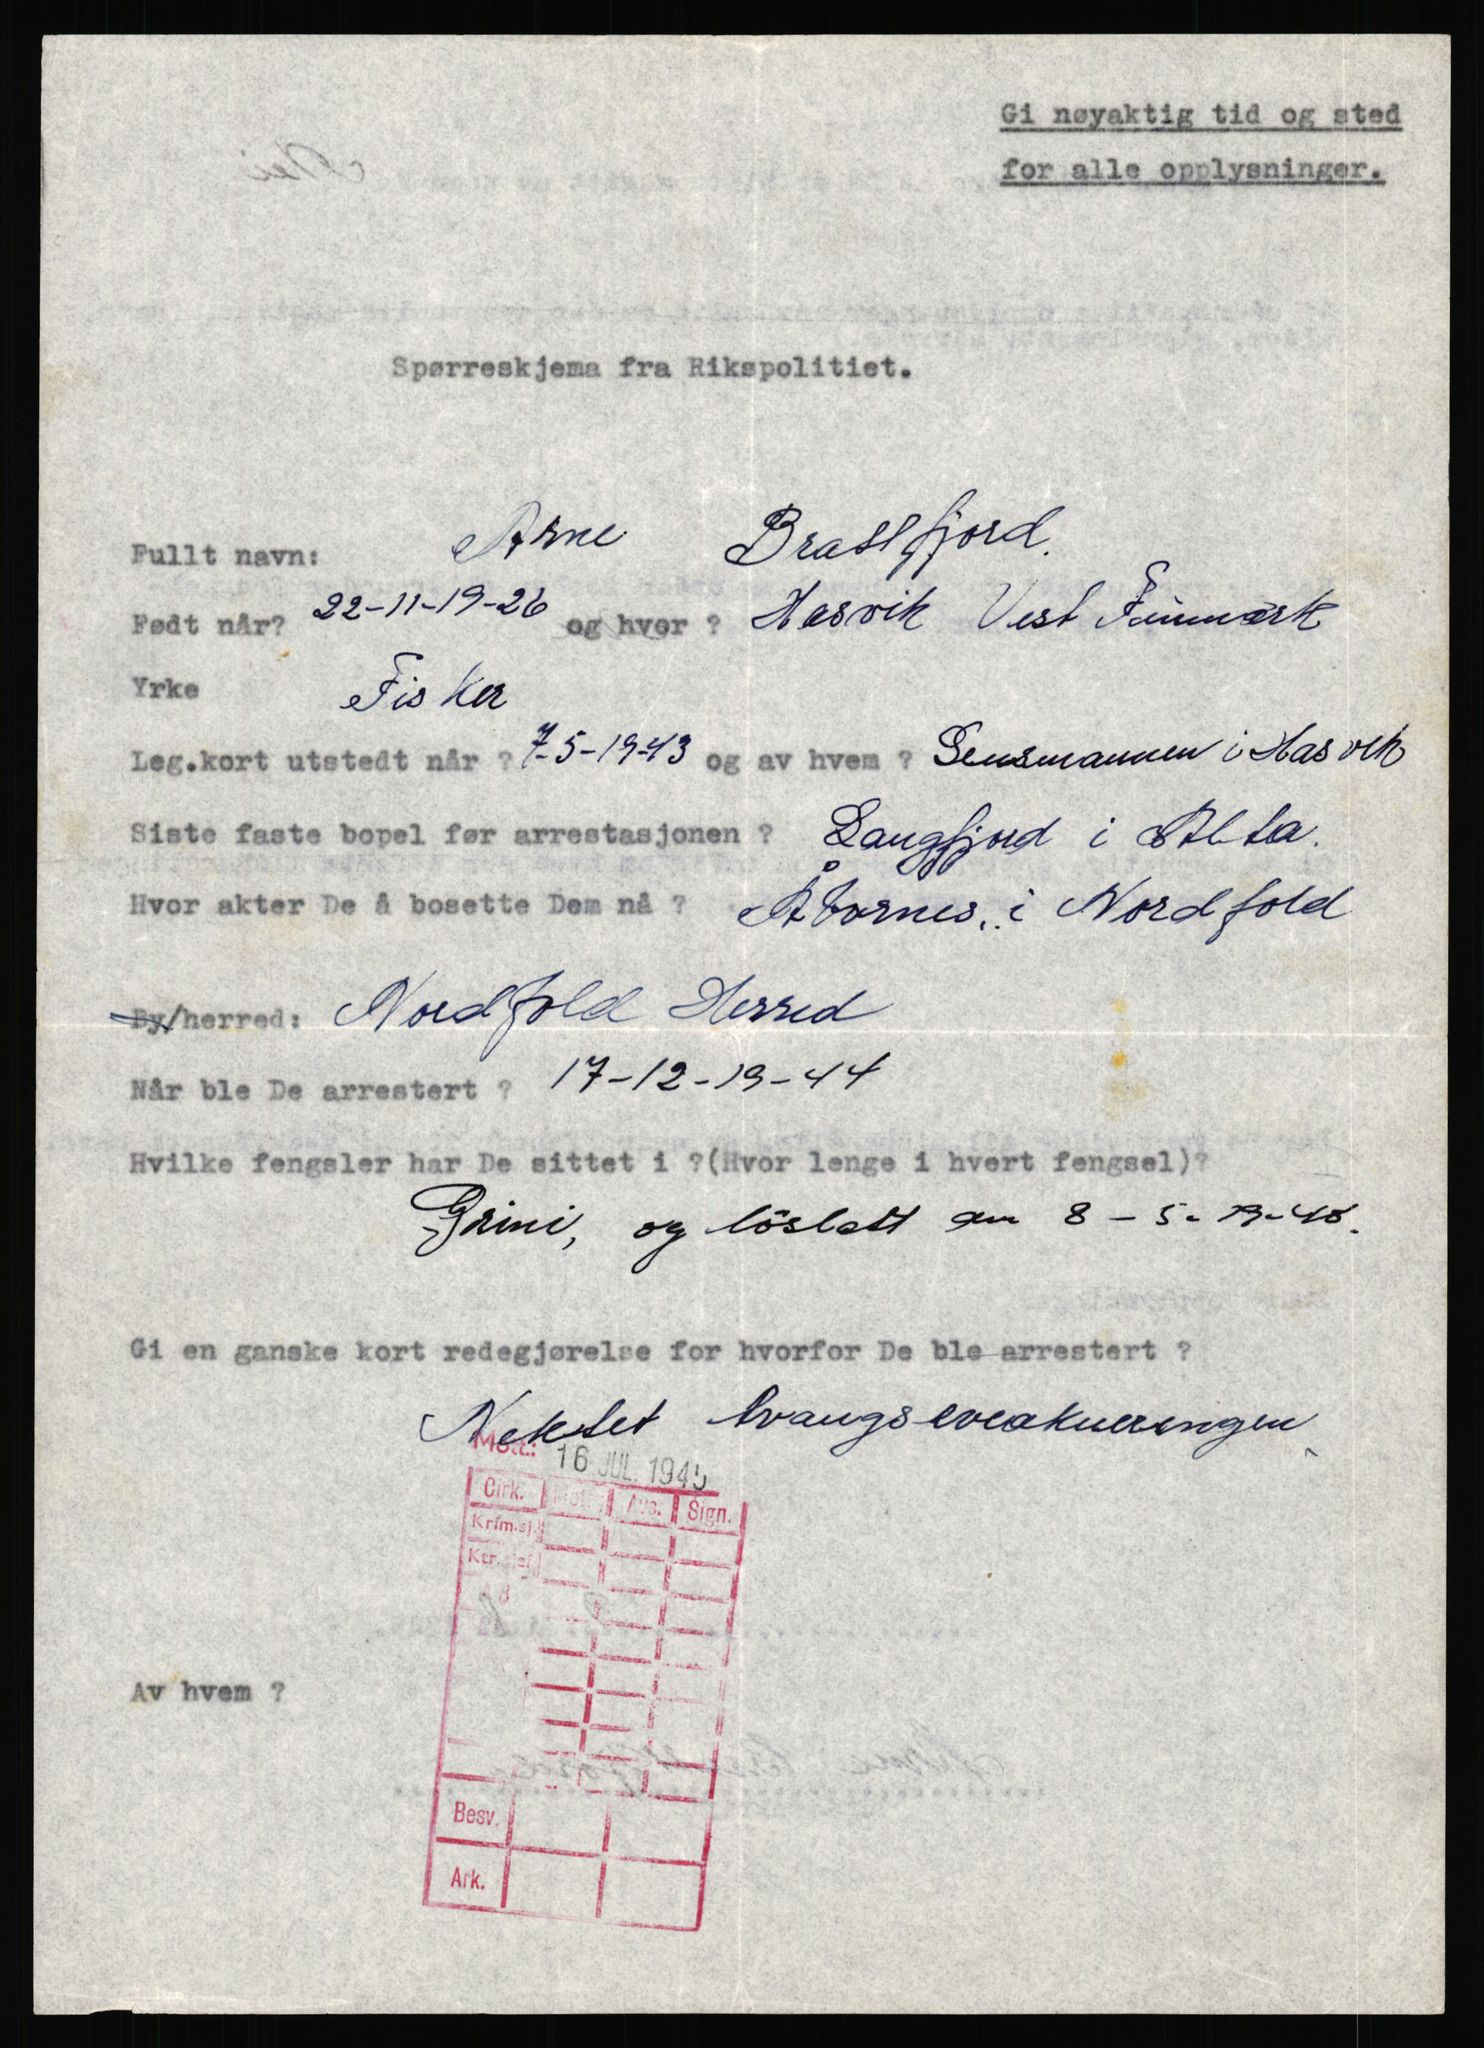 Gi nøyaktig tid og sted
for alle opplysninger.
Spørreskjema fra Rikspolitiet.
Fullt navn: Arne Brattfjord.
Født når? 22-11-19-26 og hvor ? Hasvik Vest Finmark
Yrke Fisker
Leg.kort utstedt når ? 7-5-19-43 og av hvem ? Lensmannen i Hasvik
Siste faste bopel før arrestasjonen ? Langfjord i Alta.
Hvor akter De å bosette Dem nå ? i Nordfold
By/herred: Nordfold Herred
Når ble De arrestert ? 17-12-19-44
Hvilke fengsler har De sittet i ?(Hvor lenge i hvert fengsel)?
Grini, og löslatt den 8-5-19-45.
Gi en ganske kort redegjørelse for hvorfor De ble arrestert ?
Nektet tvangsevakueringen
Mott.: 16 JUL. 1945
Cirk. Mott. Avs. Sign.
Krim.sj.
Ktr.sjef
Av hvem ?
Besv.
Ark.